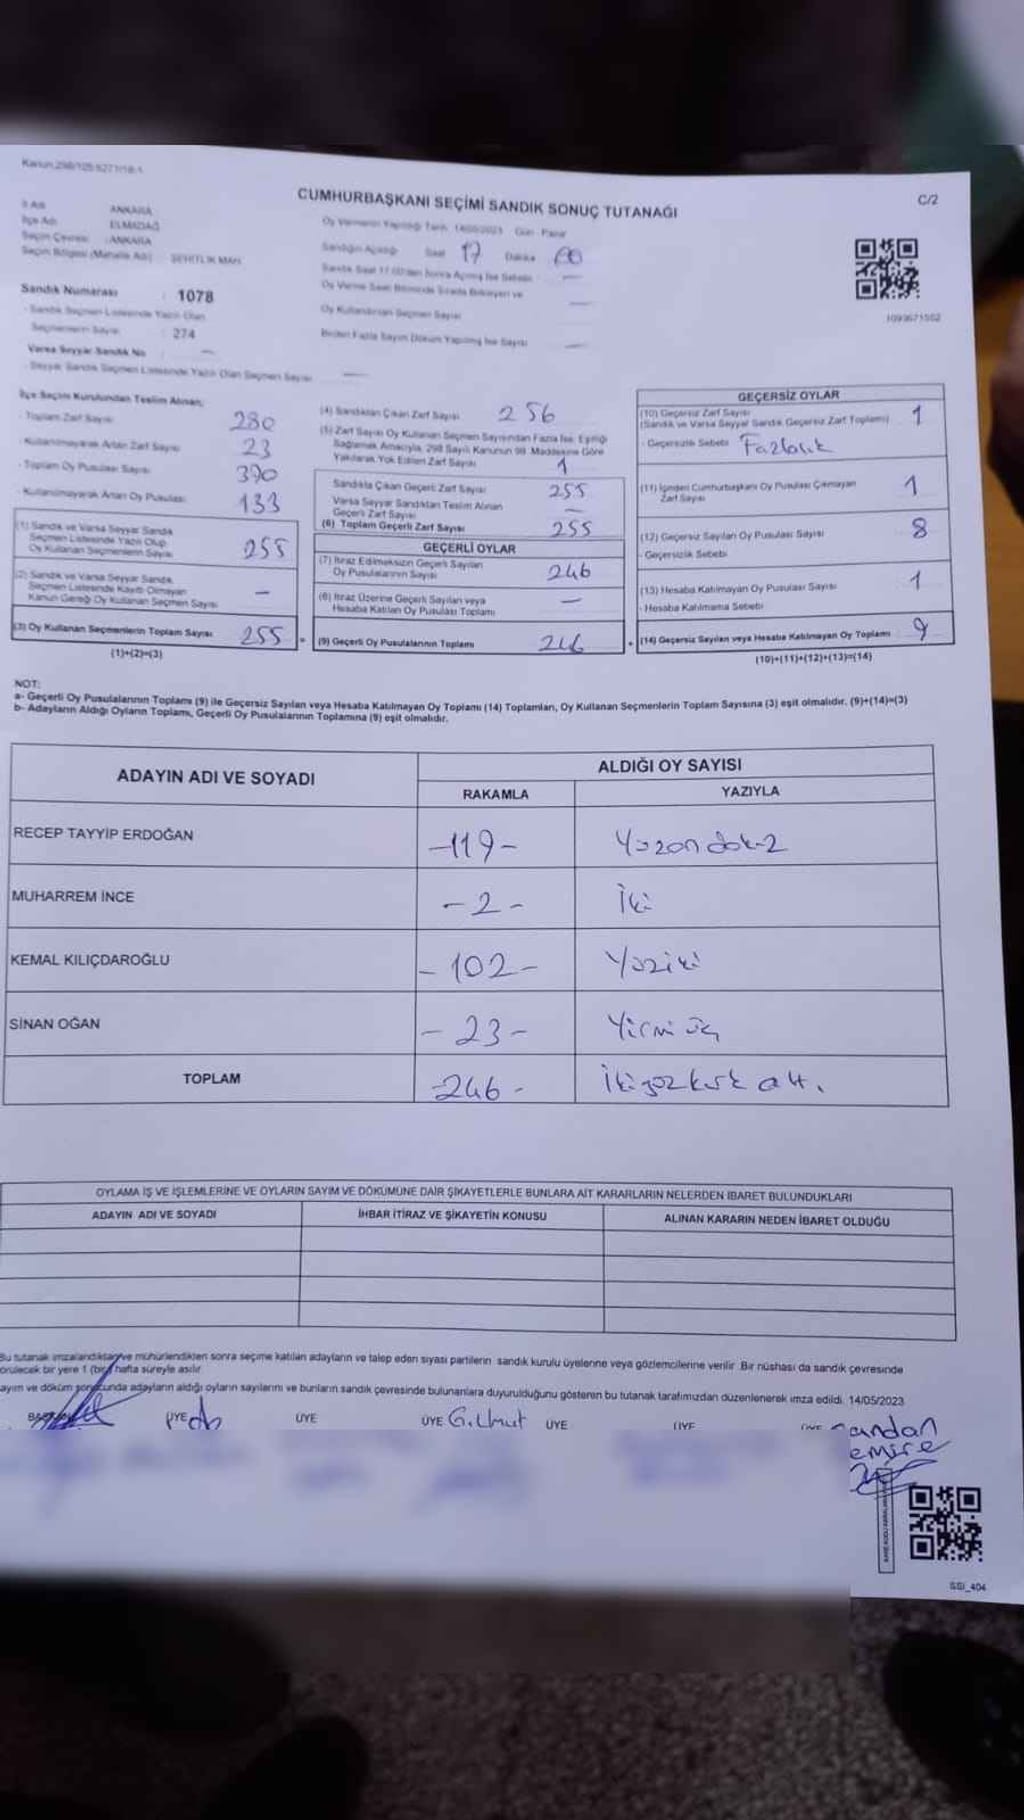 Kanun:298/105 6271/18-1
CUMHURBAŞKANI SEÇİMİ SANDIK SONUÇ TUTANAĞI
C/2
İl Adı ANKARA
İlçe Adı ELMADAĞ
Seçim Çevresi : ANKARA
Seçim Bölgesi (Mahalle Adı) : ŞEHİTLİK MAH.
Oy Vermenin Yapıldığı Tarih 14/05/2023 Gün : Pazar
Sandığın Açıldığı Saat 17 Dakika 00
Sandık Saat 17:00'den Sonra Açılmış İse Sebebi —
Oy Verme Saati Bitiminde Sırada Bekleyen ve
Oy Kullandırılan Seçmen Sayısı —
Birden Fazla Sayım Döküm Yapılmış İse Sayısı —
Sandık Numarası : 1078
- Sandık Seçmen Listesinde Yazılı Olan
Seçmenlerin Sayısı : 274
Varsa Seyyar Sandık No : —
- Seyyar Sandık Seçmen Listesinde Yazılı Olan Seçmen Sayısı —
İlçe Seçim Kurulundan Teslim Alınan;
- Toplam Zarf Sayısı 280
- Kullanılmayarak Artan Zarf Sayısı 23
- Toplam Oy Pusulası Sayısı 390
- Kullanılmayarak Artan Oy Pusulası 133
(1) Sandık ve Varsa Seyyar Sandık
Seçmen Listesinde Yazılı Olup
Oy Kullanan Seçmenlerin Sayısı 255
(2) Sandık ve Varsa Seyyar Sandık
Seçmen Listesinde Kayıtlı Olmayan
Kanun Gereği Oy Kullanan Seçmen Sayısı —
(3) Oy Kullanan Seçmenlerin Toplam Sayısı 255
(1)+(2)=(3)
(4) Sandıktan Çıkan Zarf Sayısı 256
(5) Zarf Sayısı Oy Kullanan Seçmen Sayısından Fazla İse, Eşitliği
Sağlamak Amacıyla, 298 Sayılı Kanunun 98. Maddesine Göre
Yakılarak Yok Edilen Zarf Sayısı 1
Sandıkta Çıkan Geçerli Zarf Sayısı 255
Varsa Seyyar Sandıktan Teslim Alınan
Geçerli Zarf Sayısı —
(6) Toplam Geçerli Zarf Sayısı 255
GEÇERLİ OYLAR
(7) İtiraz Edilmeksizin Geçerli Sayılan
Oy Pusulalarının Sayısı 246
(8) İtiraz Üzerine Geçerli Sayılan veya
Hesaba Katılan Oy Pusulası Toplamı —
(9) Geçerli Oy Pusulalarının Toplamı 246
GEÇERSİZ OYLAR
(10) Geçersiz Zarf Sayısı
(Sandık ve Varsa Seyyar Sandık Geçersiz Zarf Toplamı) 1
- Geçersizlik Sebebi Fazlalık
(11) İçinden Cumhurbaşkanı Oy Pusulası Çıkmayan
Zarf Sayısı 1
(12) Geçersiz Sayılan Oy Pusulası Sayısı 8
- Geçersizlik Sebebi
(13) Hesaba Katılmayan Oy Pusulası Sayısı 1
- Hesaba Katılmama Sebebi
(14) Geçersiz Sayılan veya Hesaba Katılmayan Oy Toplamı 9
(10)+(11)+(12)+(13)=(14)
NOT:
a- Geçerli Oy Pusulalarının Toplamı (9) ile Geçersiz Sayılan veya Hesaba Katılmayan Oy Toplamı (14) Toplamları, Oy Kullanan Seçmenlerin Toplam Sayısına (3) eşit olmalıdır. (9)+(14)=(3)
b- Adayların Aldığı Oyların Toplamı, Geçerli Oy Pusulalarının Toplamına (9) eşit olmalıdır.
ADAYIN ADI VE SOYADI
ALDIĞI OY SAYISI
RAKAMLA YAZIYLA
RECEP TAYYİP ERDOĞAN -119- Yüzondok2
MUHARREM İNCE -2- İki
KEMAL KILIÇDAROĞLU -102- Yüziki
SİNAN OĞAN -23- Yirmi üç
TOPLAM -246- İkiyüzkırk altı.
OYLAMA İŞ VE İŞLEMLERİNE VE OYLARIN SAYIM VE DÖKÜMÜNE DAİR ŞİKAYETLERLE BUNLARA AİT KARARLARIN NELERDEN İBARET BULUNDUKLARI
ADAYIN ADI VE SOYADI İHBAR İTİRAZ VE ŞİKAYETİN KONUSU ALINAN KARARIN NEDEN İBARET OLDUĞU
Bu tutanak imzalandıktan ve mühürlendikten sonra seçime katılan adayların ve talep eden siyasi partilerin sandık kurulu üyelerine veya gözlemcilerine verilir. Bir nüshası da sandık çevresinde
görülecek bir yere 1 (bir) hafta süreyle asılır.
ayım ve döküm sonucunda adayların aldığı oyların sayılarını ve bunların sandık çevresinde bulunanlara duyurulduğunu gösteren bu tutanak tarafımızdan düzenlenerek imza edildi. 14/05/2023
ÜYE ÜYE ÜYE ÜYE ÜYE
andan
emire
SSI_404